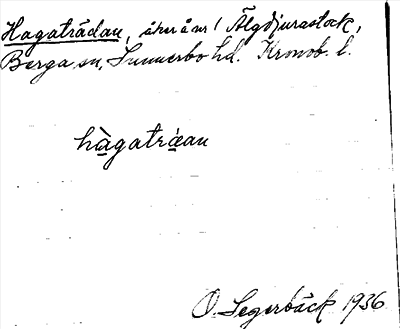 Hagaträdan, åkrar i Älgdjurastock,
Berga sn, Sunnerbo hd. Kronob. l.
hàgatràan
O. Segerbäck 1936